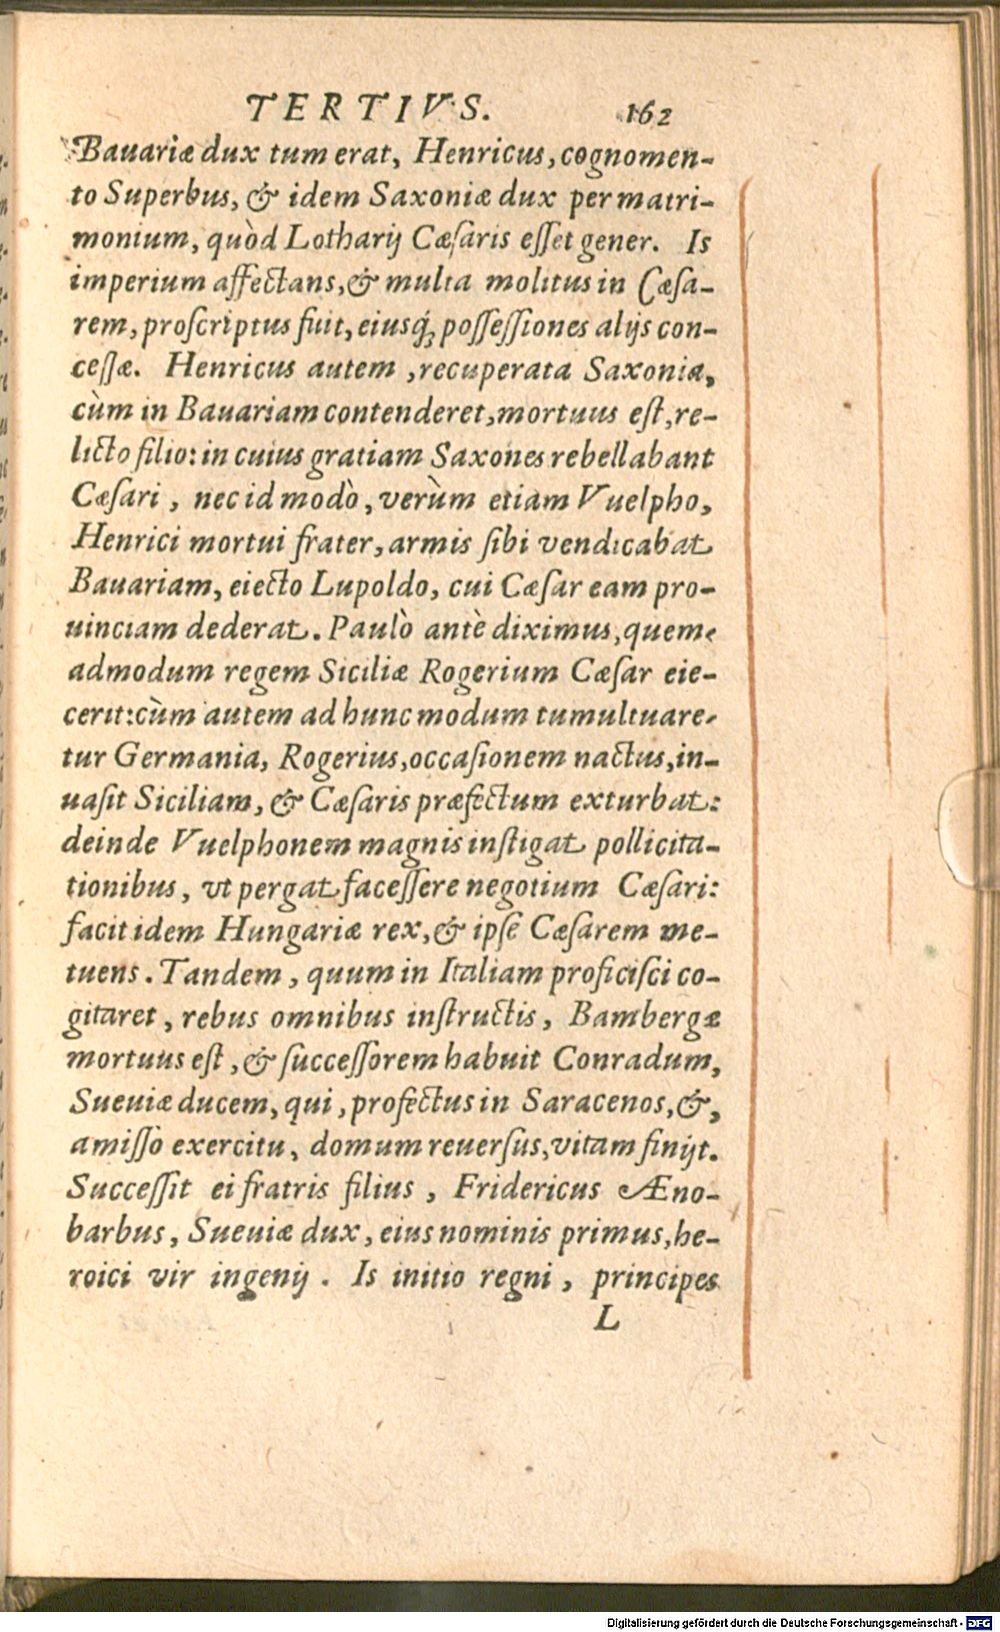 TERTIVS. 162
Bauariæ dux tum erat, Henricus, cognomen-
to Superbus, & idem Saxoniæ dux per matri-
monium, quòd Lotharij Cæſaris eſſet gener. Is
imperium affectans, & multa molitus in Cæſa-
rem, proſcriptus fuit, eiusq́; poſſeſſiones alijs con-
ceſſæ. Henricus autem, recuperata Saxonia,
cùm in Bauariam contenderet, mortuus eſt, re-
licto filio: in cuius gratiam Saxones rebellabant
Cæſari, nec id modò, verùm etiam Vuelpho,
Henrici mortui frater, armis ſibi vendicabat
Bauariam, eiecto Lupoldo, cui Cæſar eam pro-
uinciam dederat. Paulò antè diximus, quem-
admodum regem Siciliæ Rogerium Cæſar eie-
cerit: cùm autem ad hunc modum tumultuare-
tur Germania, Rogerius, occaſionem nactus, in-
uaſit Siciliam, & Cæſaris præfectum exturbat:
deinde Vuelphonem magnis inſtigat pollicita-
tionibus, vt pergat faceſſere negotium Cæſari:
facit idem Hungariæ rex, & ipſe Cæſarem me-
tuens. Tandem, quum in Italiam proficiſci co-
gitaret, rebus omnibus inſtructis, Bambergæ
mortuus eſt, & ſucceſſorem habuit Conradum,
Sueuiæ ducem, qui, profectus in Saracenos, &,
amiſſo exercitu, domum reuerſus, vitam finijt.
Succeſſit ei fratris filius, Fridericus Æno-
barbus, Sueuiæ dux, eius nominis primus, he-
roici vir ingenij. Is initio regni, principes
L
Digitalisierung gefördert durch die Deutsche Forschungsgemeinschaft - DFG